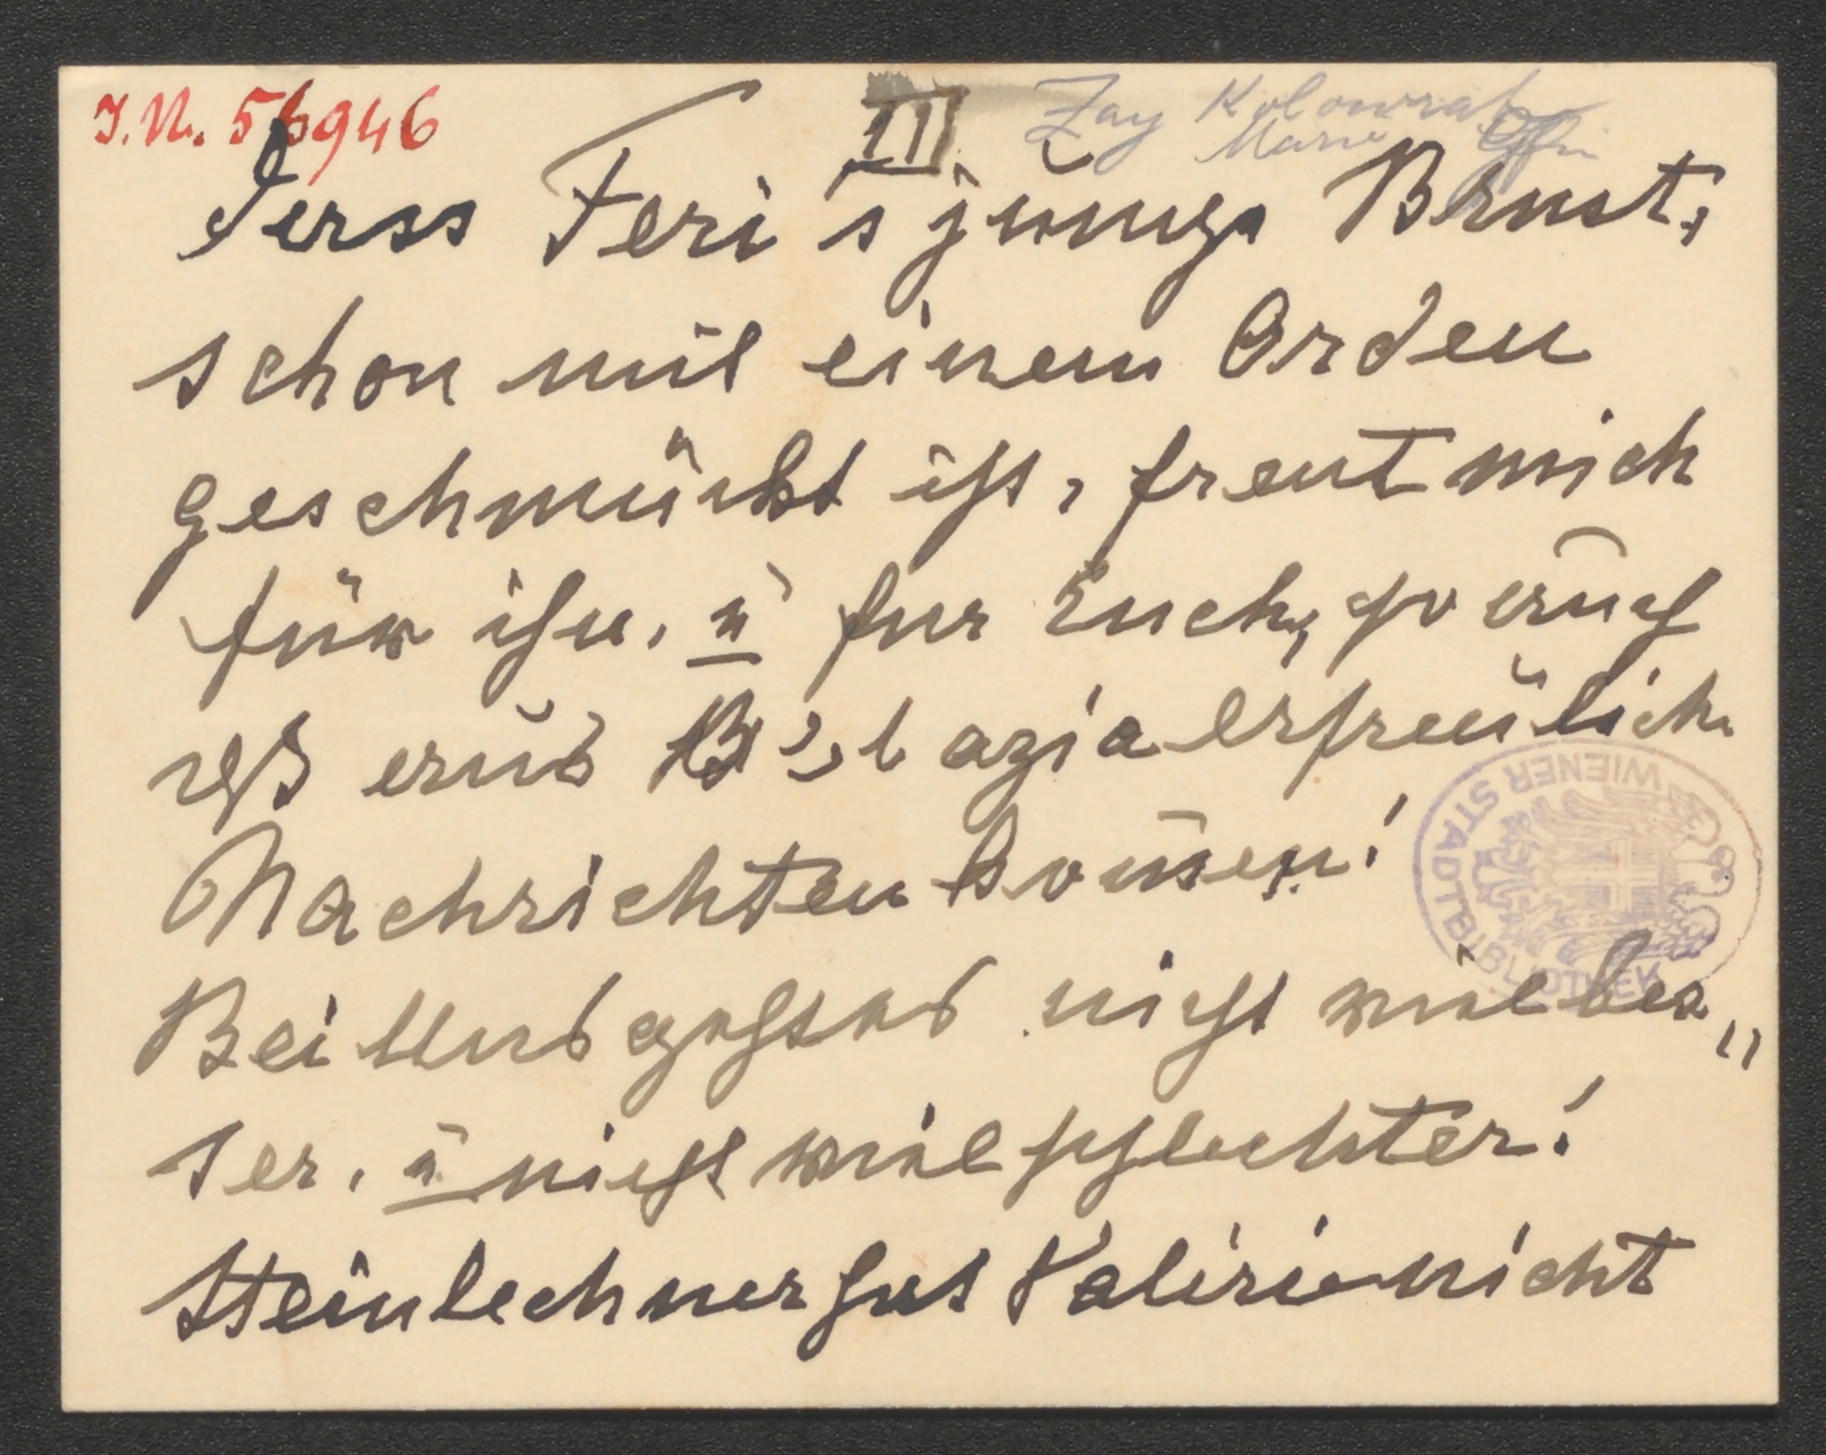 J.N. 56946
III
Zay Kolowrat
Marie Gfin
Dass Feri's junge Brust,
schon mit einem Orden
geschmückt ist, freut mich
für ihn, u für Euch, so auch
daß aus B... erfreulich
Nachrichten kom̄en!
Bei Uns geht es nicht viel bes„
ser, u nicht viel schlechter!
Steinlechner hat nicht
WIENER STADTBIBLIOTHEK